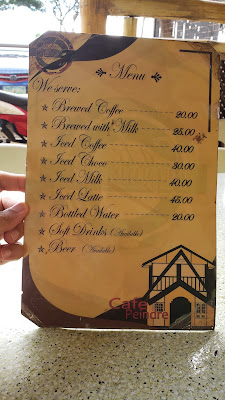 Menu
We serve:
Brewed Coffee 20.00
Brewed with Milk 25.00
Iced Coffee 40.00
Iced Choco 30.00
Iced Milk 40.00
Iced Latte 45.00
Bottled Water 20.00
Soft Drinks (Available)
Beer (Available)
Cafe
Peindre